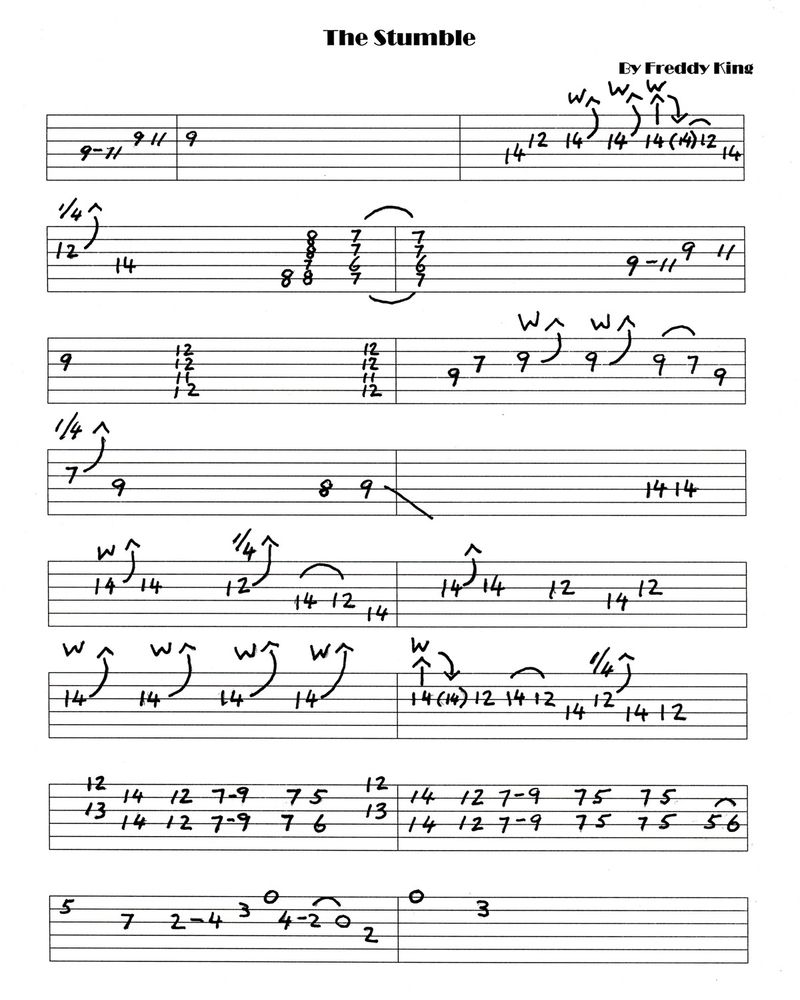 The Stumble
By Freddy King
W W W
9-11 9 11 9 14 12 14 14 14 (14) 12 14
1/4
12 14 8 8 8 8 7 8 7 7 6 7 7 7 6 7 9-11 9 11
W W
9 12 12 11 12 12 12 11 12 9 7 9 9 9 7 9
1/4
7 9 8 9 14 14
W 1/4
14 14 12 14 12 14 14 14 12 14 12
W W W W W 1/4
14 14 14 14 14 (14) 12 14 12 14 12 14 12
12 14 12 7-9 7 5 12 14 12 7-9 7 5 7 5
13 14 12 7-9 7 6 13 14 12 7-9 7 5 7 5 5 6
5 7 2-4 3 0 4-2 0 2 0 3